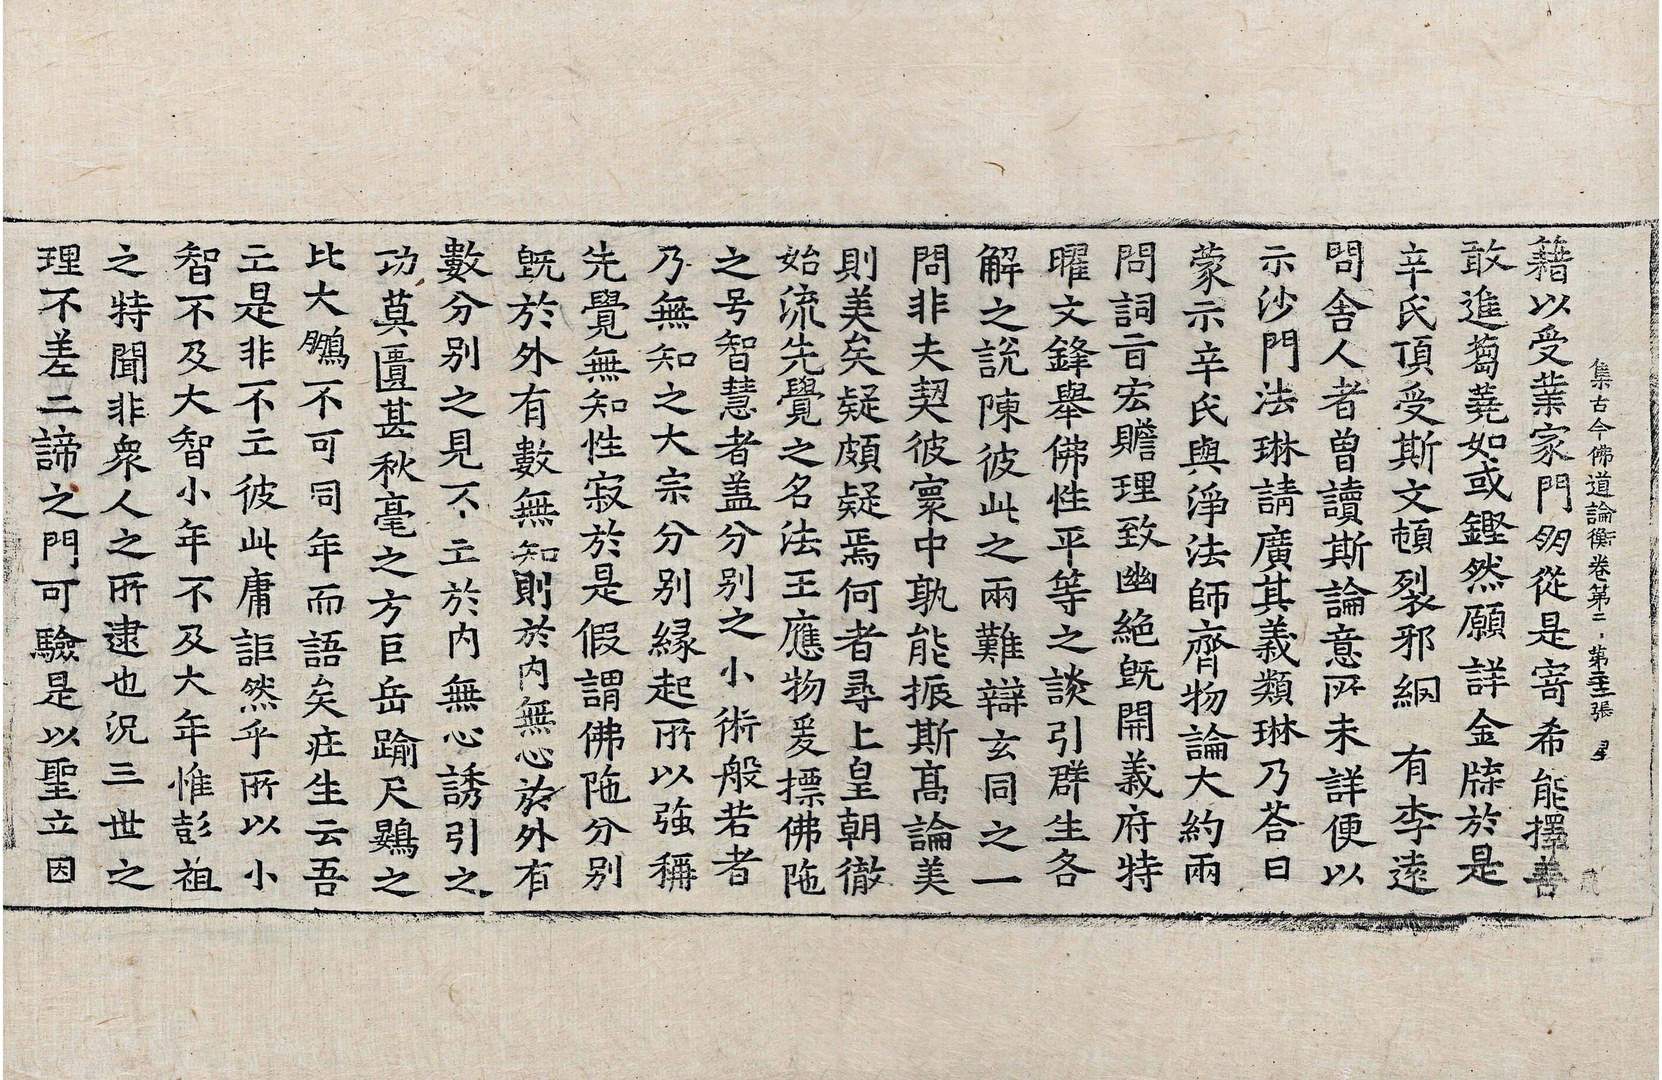 集古今佛道論衡卷第二 第三張
籍以受業家門朋從是寄希能擇善
敢進蒭蕘如或鏗然願詳金牒於是
辛氏頂受斯文頓裂邪網 有李遠
問舍人者曽讀斯論意所未詳便以
示沙門法琳請廣其義類琳乃荅曰
蒙示辛氏與淨法師齊物論大約兩
問詞旨宏贍理致幽絶旣開義府特
曜文鋒舉佛性平等之談引群生各
解之說陳彼此之兩難辯玄同之一
問非夫契彼寰中孰能振斯高論美
則美矣疑頗疑焉何者尋上皇朝徹
始流先覺之名法王應物爰摽佛陁
之号智慧者盖分别之小術般若者
乃無知之大宗分别緣起所以強稱
先覺無知性寂於是假謂佛陁分别
旣於外有數無知則於內無心於外有
數分别之見不亡於內無心誘引之
功莫匱甚秋毫之方巨岳踰尺鷃之
比大鵬不可同年而語矣庄生云吾
亡是非不亡彼此庸詎然乎所以小
智不及大智小年不及大年惟彭祖
之特聞非衆人之所逮也況三世之
理不差二諦之門可驗是以聖立因